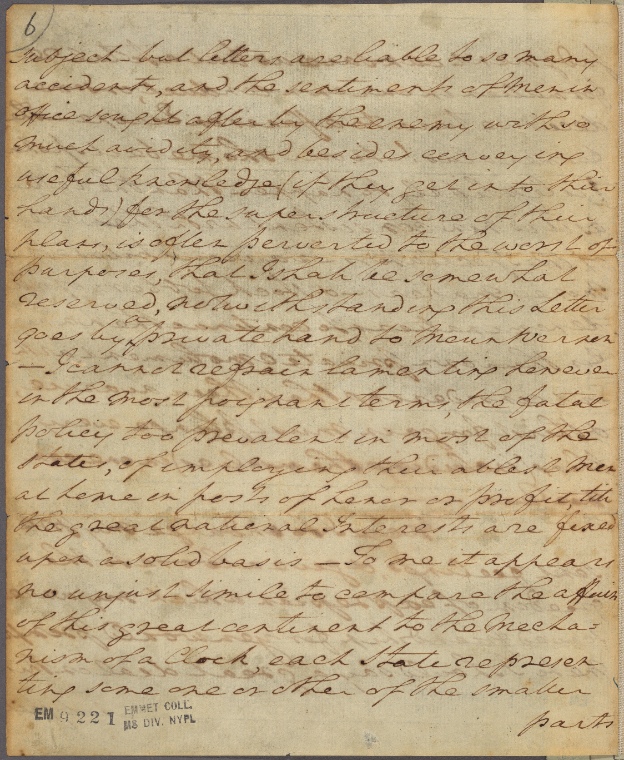 6
subject - but letters are liable to so many
accidents, and the sentiments of Men in
office sought after by the enemy with so
much avidity, and besides conveying
useful knowledge (if they get into their
hands) for the superstructure of their
plans, is often perverted to the worst of
purposes, that I shall be somewhat
reserved, notwithstanding this Letter
goes by a private hand to Mount Vernon
— I cannot refrain lamenting however
in the most poignant terms, the fatal
policy too prevalent in most of the
States, of employing their ablest Men
at home in posts of honor or profit, till
the great national Interests are fixed
upon a solid basis — To me it appears
no unjust simile to compare the affairs
of this great continent to the Mecha=
nism of a Clock, each State represen
ting some one or other of the smaller
parts
EM 9221 EMMET COLL.
MS DIV. NYPL